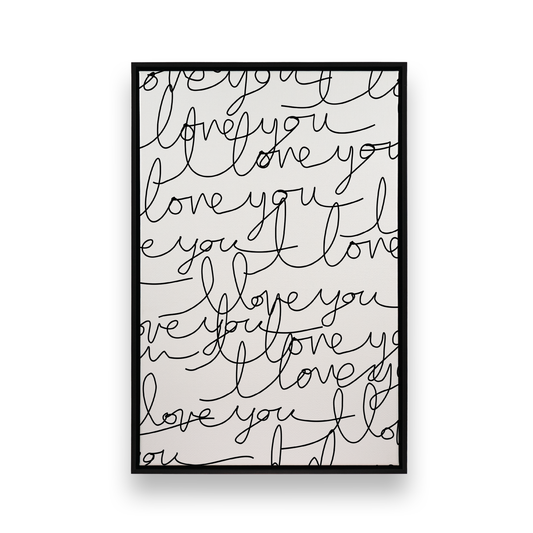 love you I lo
I love you
I love you
love you I
e you I love
I love you
ove you I love yo
I love y
love you I lo
ou I